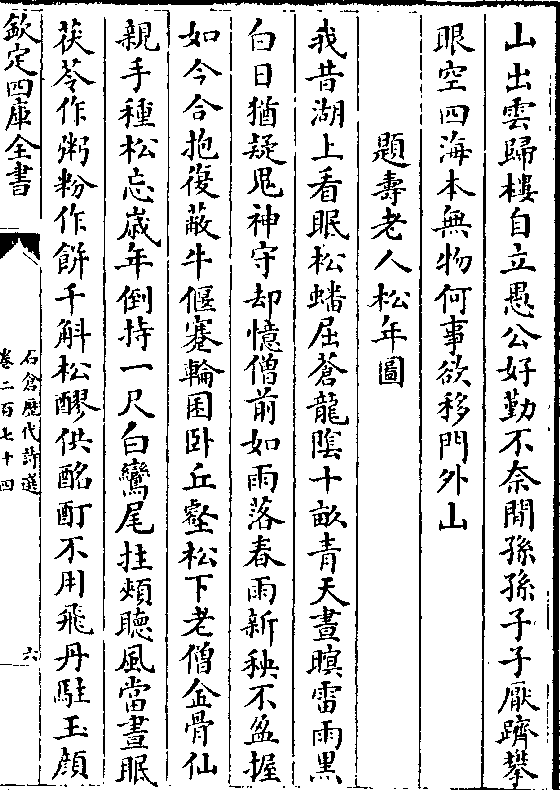 山出雲歸樓自立愚公好勤不奈閒孫孫子子厭躋攀
眼空四海本無物何事欲移門外山
題壽老人松年圖
我昔湖上看眠松蟠屈蒼龍陰十畝青天晝暝雷雨黑
白日猶疑鬼神守却憶僧前如雨落春雨新秧不盈握
如今合抱復蔽牛偃蹇輪囷卧丘壑松下老僧金骨仙
親手種松忘歳年倒持一尺白鸞尾拄頰聽風當晝眠
茯苓作粥粉作餅千斛松醪供酩酊不用飛丹駐玉顔
欽定四庫全書
石倉歷代詩選
卷二百七十四
六